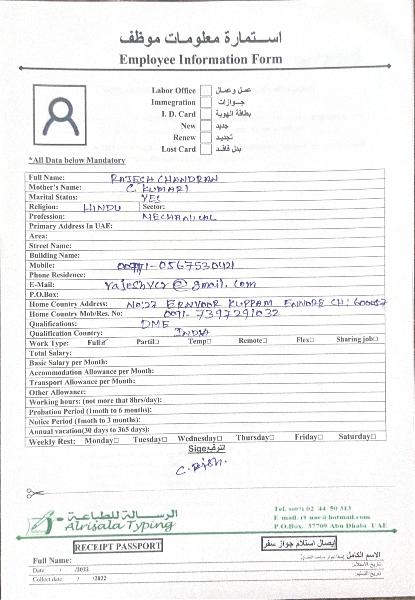 استمارة معلومات موظف
Employee Information Form
Labor Office عمل وعمال
Immegration جوازات
I. D. Card بطاقة الهوية
New جديد
Renew تجديد
Lost Card بدل فاقد
*All Data below Mandatory
Full Name: RAJESH CHANDRAN
Mother's Name: C. KUMARI
Marital Status: YES
Religion: HINDU Sector:
Profession: MECHANICAL
Primary Address In UAE:
Area:
Street Name:
Building Name:
Mobile: 00971-0567530421
Phone Residence:
E-Mail: @gmail.com
P.O.Box:
Home Country Address: No:27 ERNVOOR KUPPAM ENNORE CH: 600057
Home Country Mob/Res. No: 0091- 7397291032
Qualifications: DME
Qualification Country: INDIA
Work Type: Full Partil Temp Remote Flex Sharing job
Total Salary:
Basic Salary per Month:
Accommodation Allowance per Month:
Transport Allowance per Month:
Other Allowance:
Working hours: (not more that 8hrs/day):
Probation Period (1moth to 6 months):
Notice Period (1moth to 3 months):
Annual vacation(30 days to 365 days):
Weekly Rest: Monday Tuesday Wednesday Thursday Friday Saturday
Sige
الرسالة للطباعة
Alrisala Typing
Tel. 02 44 50 313
E mail. rt uae@hotmail.com
P.O.Box. 37709 Abu Dhabi UAE
RECEIPT PASSPORT إيصال استلام جواز سفر
Full Name: الاسم الكامل
Date / /2022 تاريخ الاستلام:
Collect date: / /2022 تاريخ التسليم: